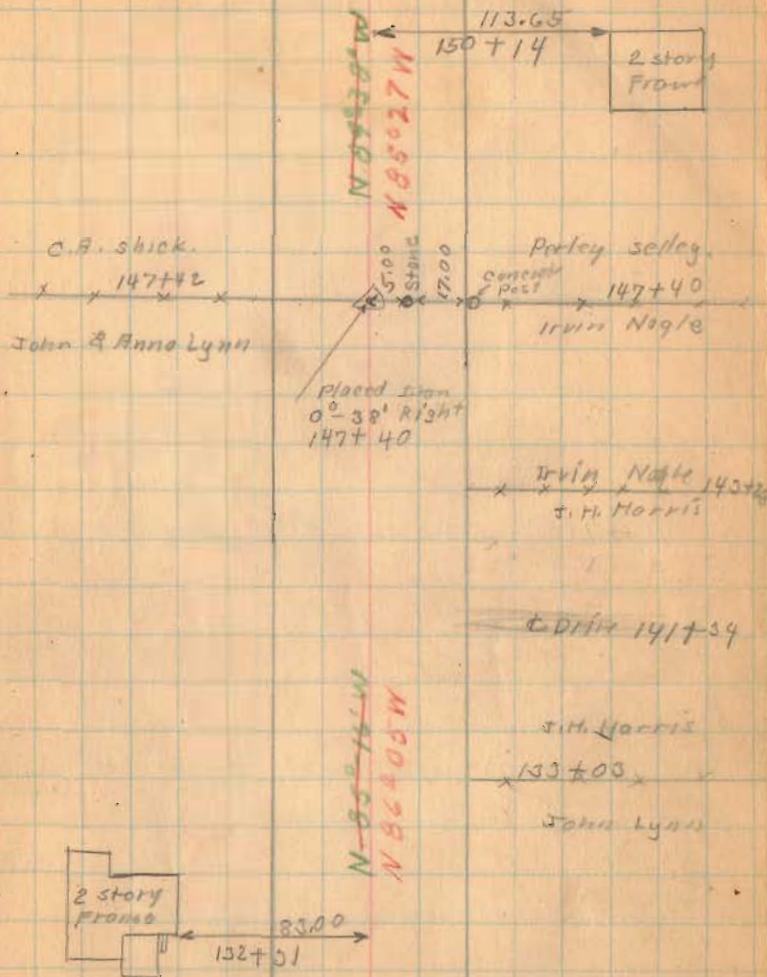 113.65
150+14
2 story
Frame
N 84°38' W
N 85°27 W
C.A. Shick.
147+42
John & Anna Lynn
5.00
Stone
17.00
Concrete
Post
Perley Selley.
147+40
Irvin Nagle
Placed Iron
0°-38' Right
147+40
Irvin Nagle
J.H. Harris
℄ Drive 141+34
N 85°-16' W
N 86°05 W
J.H. Harris
133+03
John Lynn
2 story
Frame
83.00
132+31